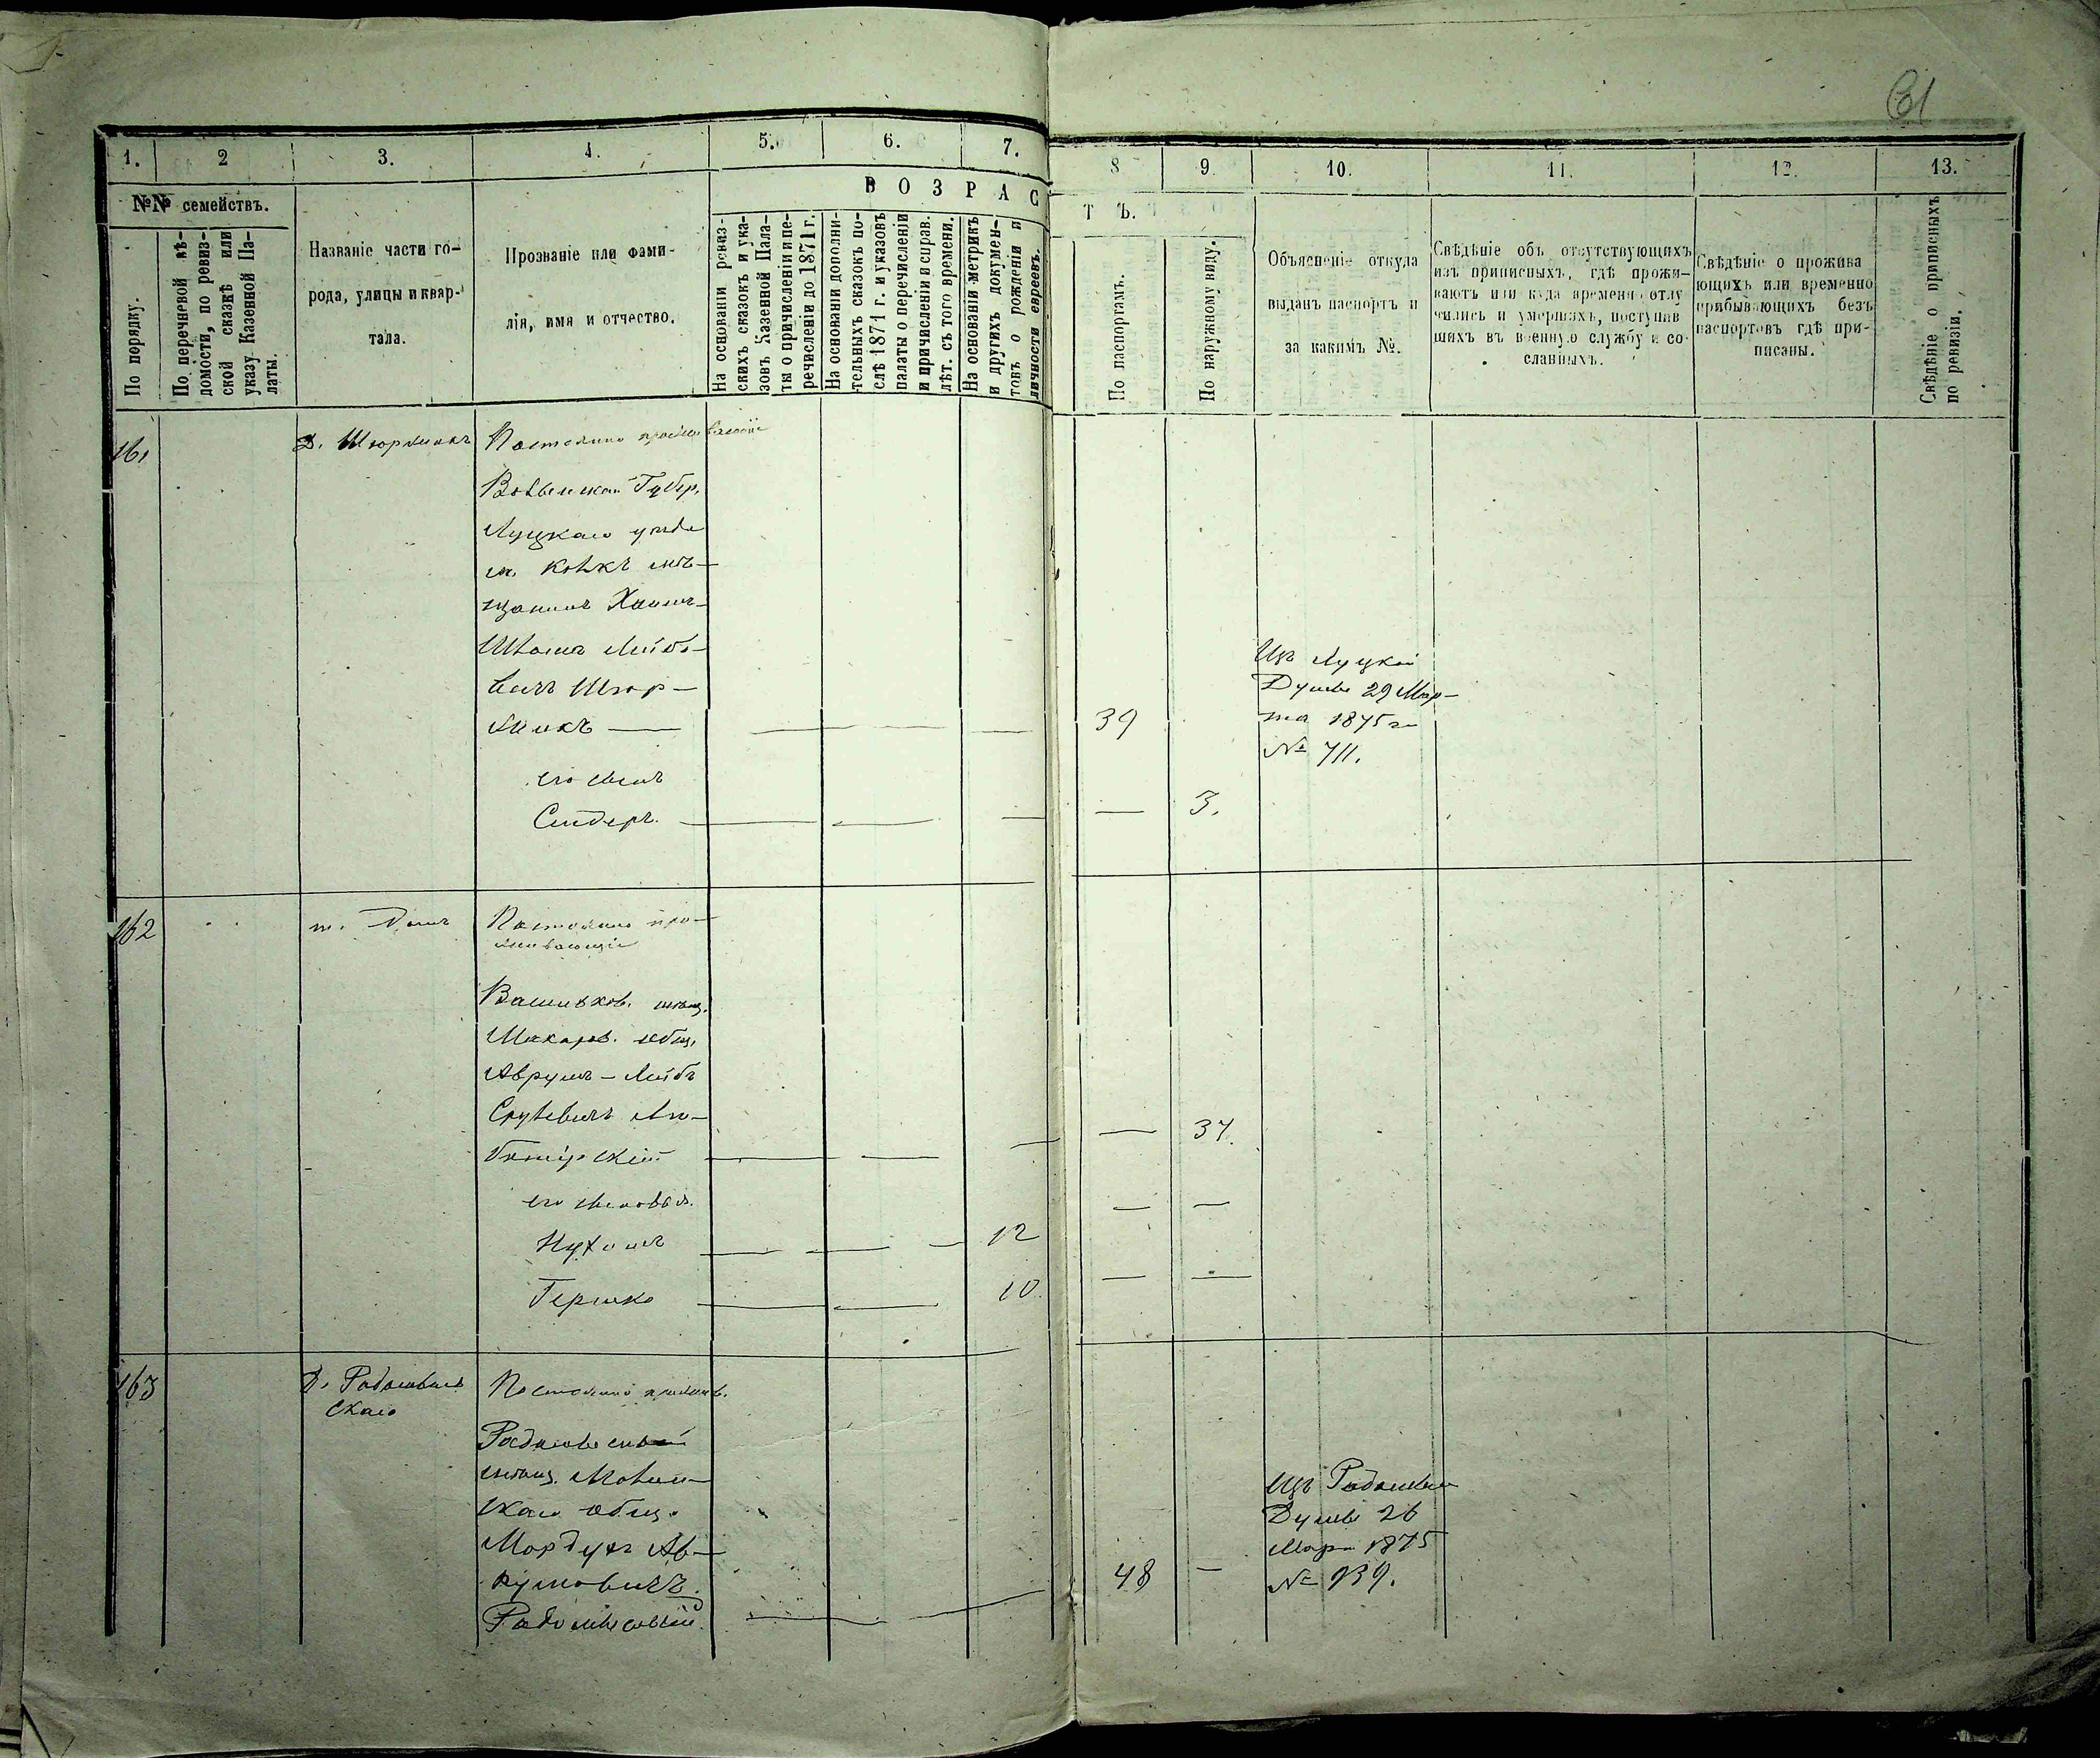 61
1.
2
3.
4.
5.
6.
7.
8
9.
10.
11.
12.
13.
№№ семействъ.
По порядку.
По перечневой вѣ-
домости, по ревиз-
ской сказкѣ или
указу Казенной Па-
латы.
Названіе части го-
рода, улицы и квар-
тала.
Прозваніе или фами-
лія, имя и отчество.
ВОЗРАС
ТЪ.
На основаніи ревиз-
скихъ сказокъ и ука-
зовъ Казенной Пала-
ты о причисленіи и пе-
речисленіи до 1871 г.
На основаніи дополни-
тельныхъ сказокъ по-
слѣ 1871 г. и указовъ
палаты о перечисленіи
и причисленіи и справ.
лѣт. съ того времени.
На основаніи метрикъ
и другихъ докумен-
товъ о рожденіи и
личности евреевъ.
По паспортамъ.
По наружному виду.
Объясненіе откуда
выданъ паспортъ и
за какимъ №.
Свѣдѣніе объ отсутствующихъ
изъ приписныхъ, гдѣ прожи-
ваютъ или куда временно отлу
чились и умершихъ, поступив
шихъ въ военную службу и со
сланныхъ.
Свѣдѣніе о прожива
ющихъ или временно
прибывающихъ безъ
паспортовъ гдѣ при-
писаны.
Свѣдѣніе о приписныхъ
по ревизіи.
161
Д.
Постоянно проживающіе
Губер.
Луцкаго уѣзда
м. Колкъ мѣ-
щанинъ Хаимъ-
Шломa Лейбо-
вичъ Штор-
—
39
Изъ Луцкой
Думы 29 Мар-
та 1875 г.
№ 711.
его сынъ
— — — — 3.
162
т. Домъ
Постоянно про-
живающіе
Васильков. мѣщ.
Макаров. общ.
Аврумъ-Лейбъ
Срулевичъ
— — — — 37.
его сыновья
Нухимъ — — — 12 — —
Гершко — — 10. — —
163
Д. Радомысль
скаго
Постоянно прожив.
Радомысльскій
мѣщ.
скаго общ.
Мордухъ Ав-
румовичъ
Радомысльскій
— — — 48 —
Изъ
Думы 26
Марта 1875
№ 939.